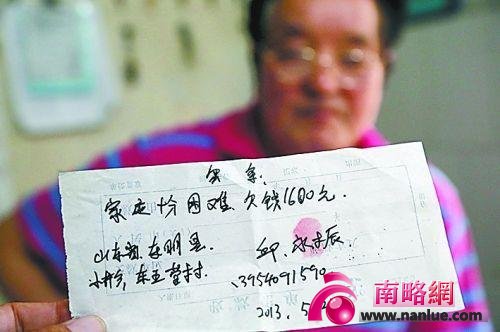 欠条:
家庭十分困难,欠钱1600元.
山东省,东明县
小井乡,东王草村.
邱
13954091590
2013.5
南略網
www.nanlue.com